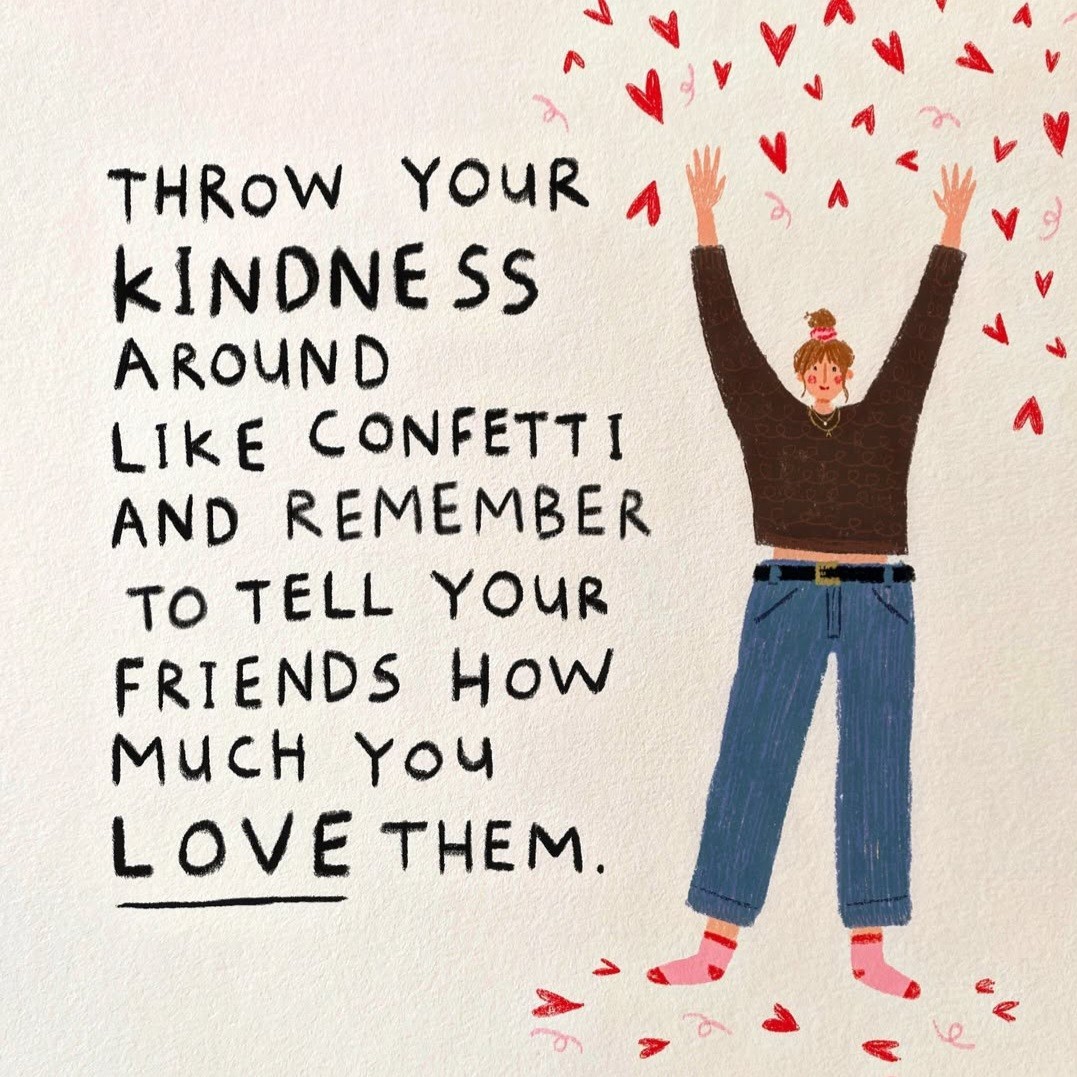 THROW YOUR
KINDNESS
AROUND
LIKE CONFETTI
AND REMEMBER
TO TELL YOUR
FRIENDS HOW
MUCH YOU
LOVE THEM.